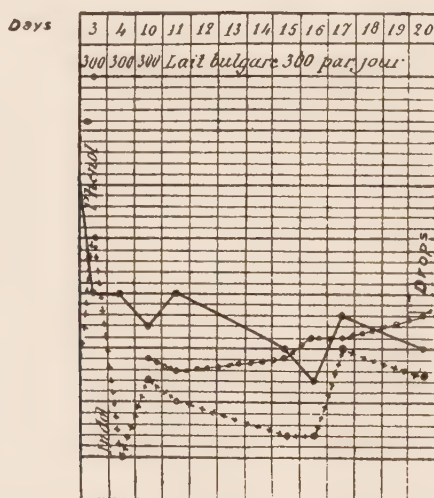 Days 3 4 10 11 12 13 14 15 16 17 18 19 20
300 300 300 Lait bulgare 300 par jour
Phenol
Drops
Indol